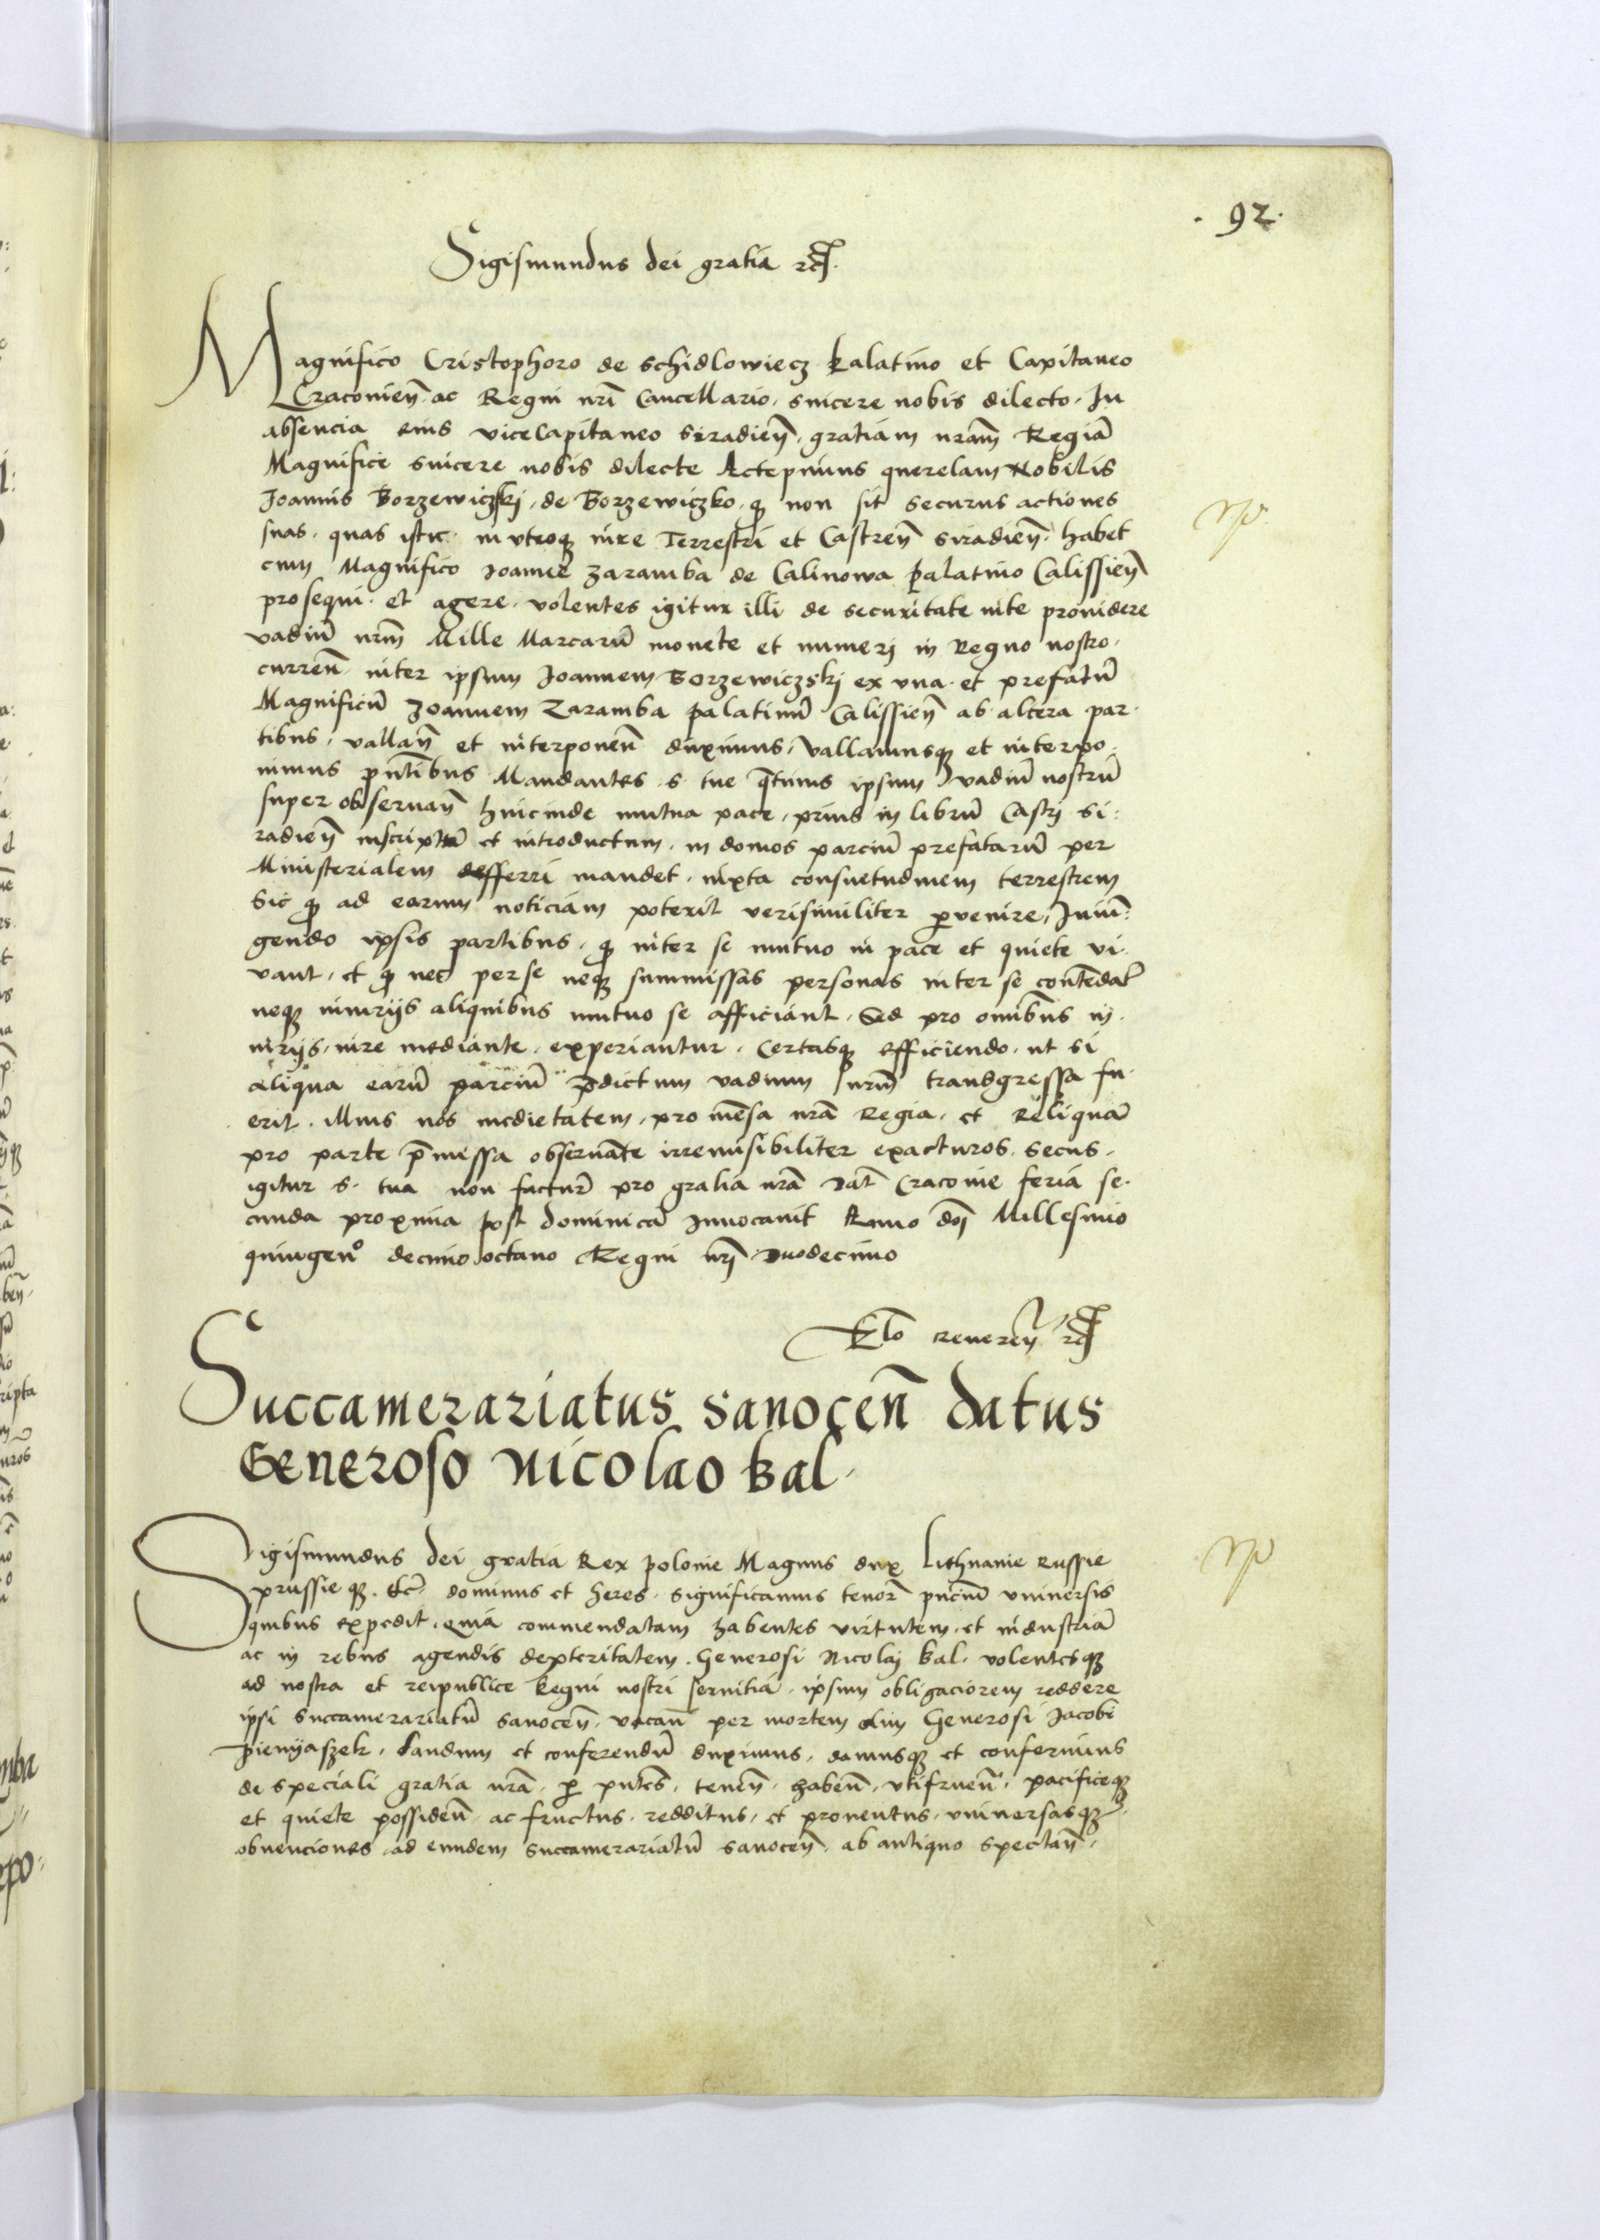 . 92.
Sigismundus dei gratia rcȝ.
Magnifico Cristophoro de Schidlowiecz palatino et Capitaneo
Cracovieñ. ac Regni nrī Cancellario. sincere nobis dilecto. In
absencia eius viceCapitaneo Siradieñ. gratiam nram̄ Regiā
Magnifice sincere nobis dilecte Accepimus querelam Nobilis
Joannis Borzewiczskj. de Borzewiczko. qȝ non sit securus actiones
suas. quas istic. in utroqȝ iure Terrestri et Castreñ Siradieñ. habet
cum Magnifico Joanne Zaramba de Calinowa palatino Calissieñ
prosequi. et agere. volentes igitur illi de securitate rite providere
vadiū nrm̄ Mille Marcarū monete et numeri in Regno nostro.
curreñ inter ipsum Joannem Borzewiczskj ex una. et prefatū
Magnificū Joannem Zaramba palatinū Calissieñ ab altera par-
tibus. vallañ et interponeñ duximus. vallamusqȝ et interpo-
nimus pn̄tibus Mandantes s. tue q̄tinus ipsum vadiū nostrū
super observañ hincinde mutua pace. prius in librū Castri Si:
radieñ inscriptū et introductum. in domos parciū prefatarū per
Ministerialem defferri mandet. iuxta consuetudinem terrestrem
Sic qȝ ad earum noticiam poterit verisimiliter pervenire, Iniū:
gendo ipsis partibus. qȝ inter se mutuo in pace et quiete vi-
vant. et qȝ nec per se neqȝ summissas personas inter se contēdāt
neqȝ iniurijs aliquibus mutuo se afficiant. Sed pro omībus in-
iurijs. iure mediante. experiantur. Certasqȝ efficiendo. ut si
aliqua earū parciū p̄dictum vadium nrm̄ trandgressa fu-
erit. illius nos medietatem. pro mēsa nrā Regia. et Reliquā
pro parte p̄missa observāte irremisibiliter exacturos. secus.
igitur s. tua non facturā pro gratia nrā Dat̄ Cracovie feria se-
cunda proxima post dominicā Invocavit Anno dnj̄ Millesimo
quingenᵒ decimo octavo Regni nrj̄ Duodecimo
Rᵗᵒ revereñ rcȝ
Succamerariatus sanoceñ datus
Generoso Nicolao Bal.
Sigismundus dei gratia Rex polonie Magnus dux Lithuanie Russie
prussie qȝ. etc̄ dominus et heres. significamus tenorē pn̄ciū universis
quibus expedit. quia commendatam habentes virtutem. et industriā
ac in rebus agendis dexteritatem. Generosi Nicolaj Bal. volentesqȝ
ad nostra et reipublice Regni nostri servitia. ipsum obligaciorem reddere
ipsi succamerariatū sanoceñ. vacañ per mortem olim Generosi Jacobi
Pienyaszek. dandum et conferendū duximus. damusqȝ et conferimus
de speciali gratia nrā. p̲ pn̄tes. teneñ. habeñ. utifrueñ. pacificeqȝ
et quiete possideñ. ac fructus. redditus. et proventus. universasqȝ.
obvenciones ad eundem succamerariatū sanoceñ ab antiquo spectañ.